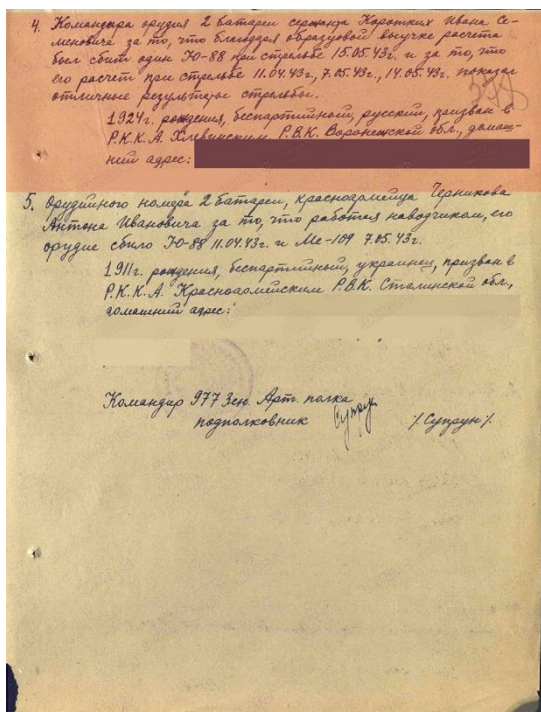 4. Командира орудия 2 батареи сержанта Коротких Ивана Се-
меновича за то, что благодаря образцовой выучке расчета
был сбит один Ю-88 при стрельбе 15.05.43г. и за то, что
его расчет при стрельбе 11.04.43г., 7.05.43г., 14.05.43г. показал
отличные результаты стрельбы.
1924г. рождения, беспартийный, русский, призван в
Р.К.К.А. Хлевинским Р.В.К. Воронежской обл., домаш-
ний адрес:
5. Орудийного номера 2 батареи, красноармейца Черникова
Антона Ивановича за то, что работая наводчиком, его
орудие сбило Ю-88 11.04.43г. и Ме-109 7.05.43г.
1911г. рождения, беспартийный, украинец, призван в
Р.К.К.А. Красноармейским Р.В.К. Сталинской обл.,
домашний адрес:
Командир 977 Зен. Арт. полка
подполковник /Супрун/.